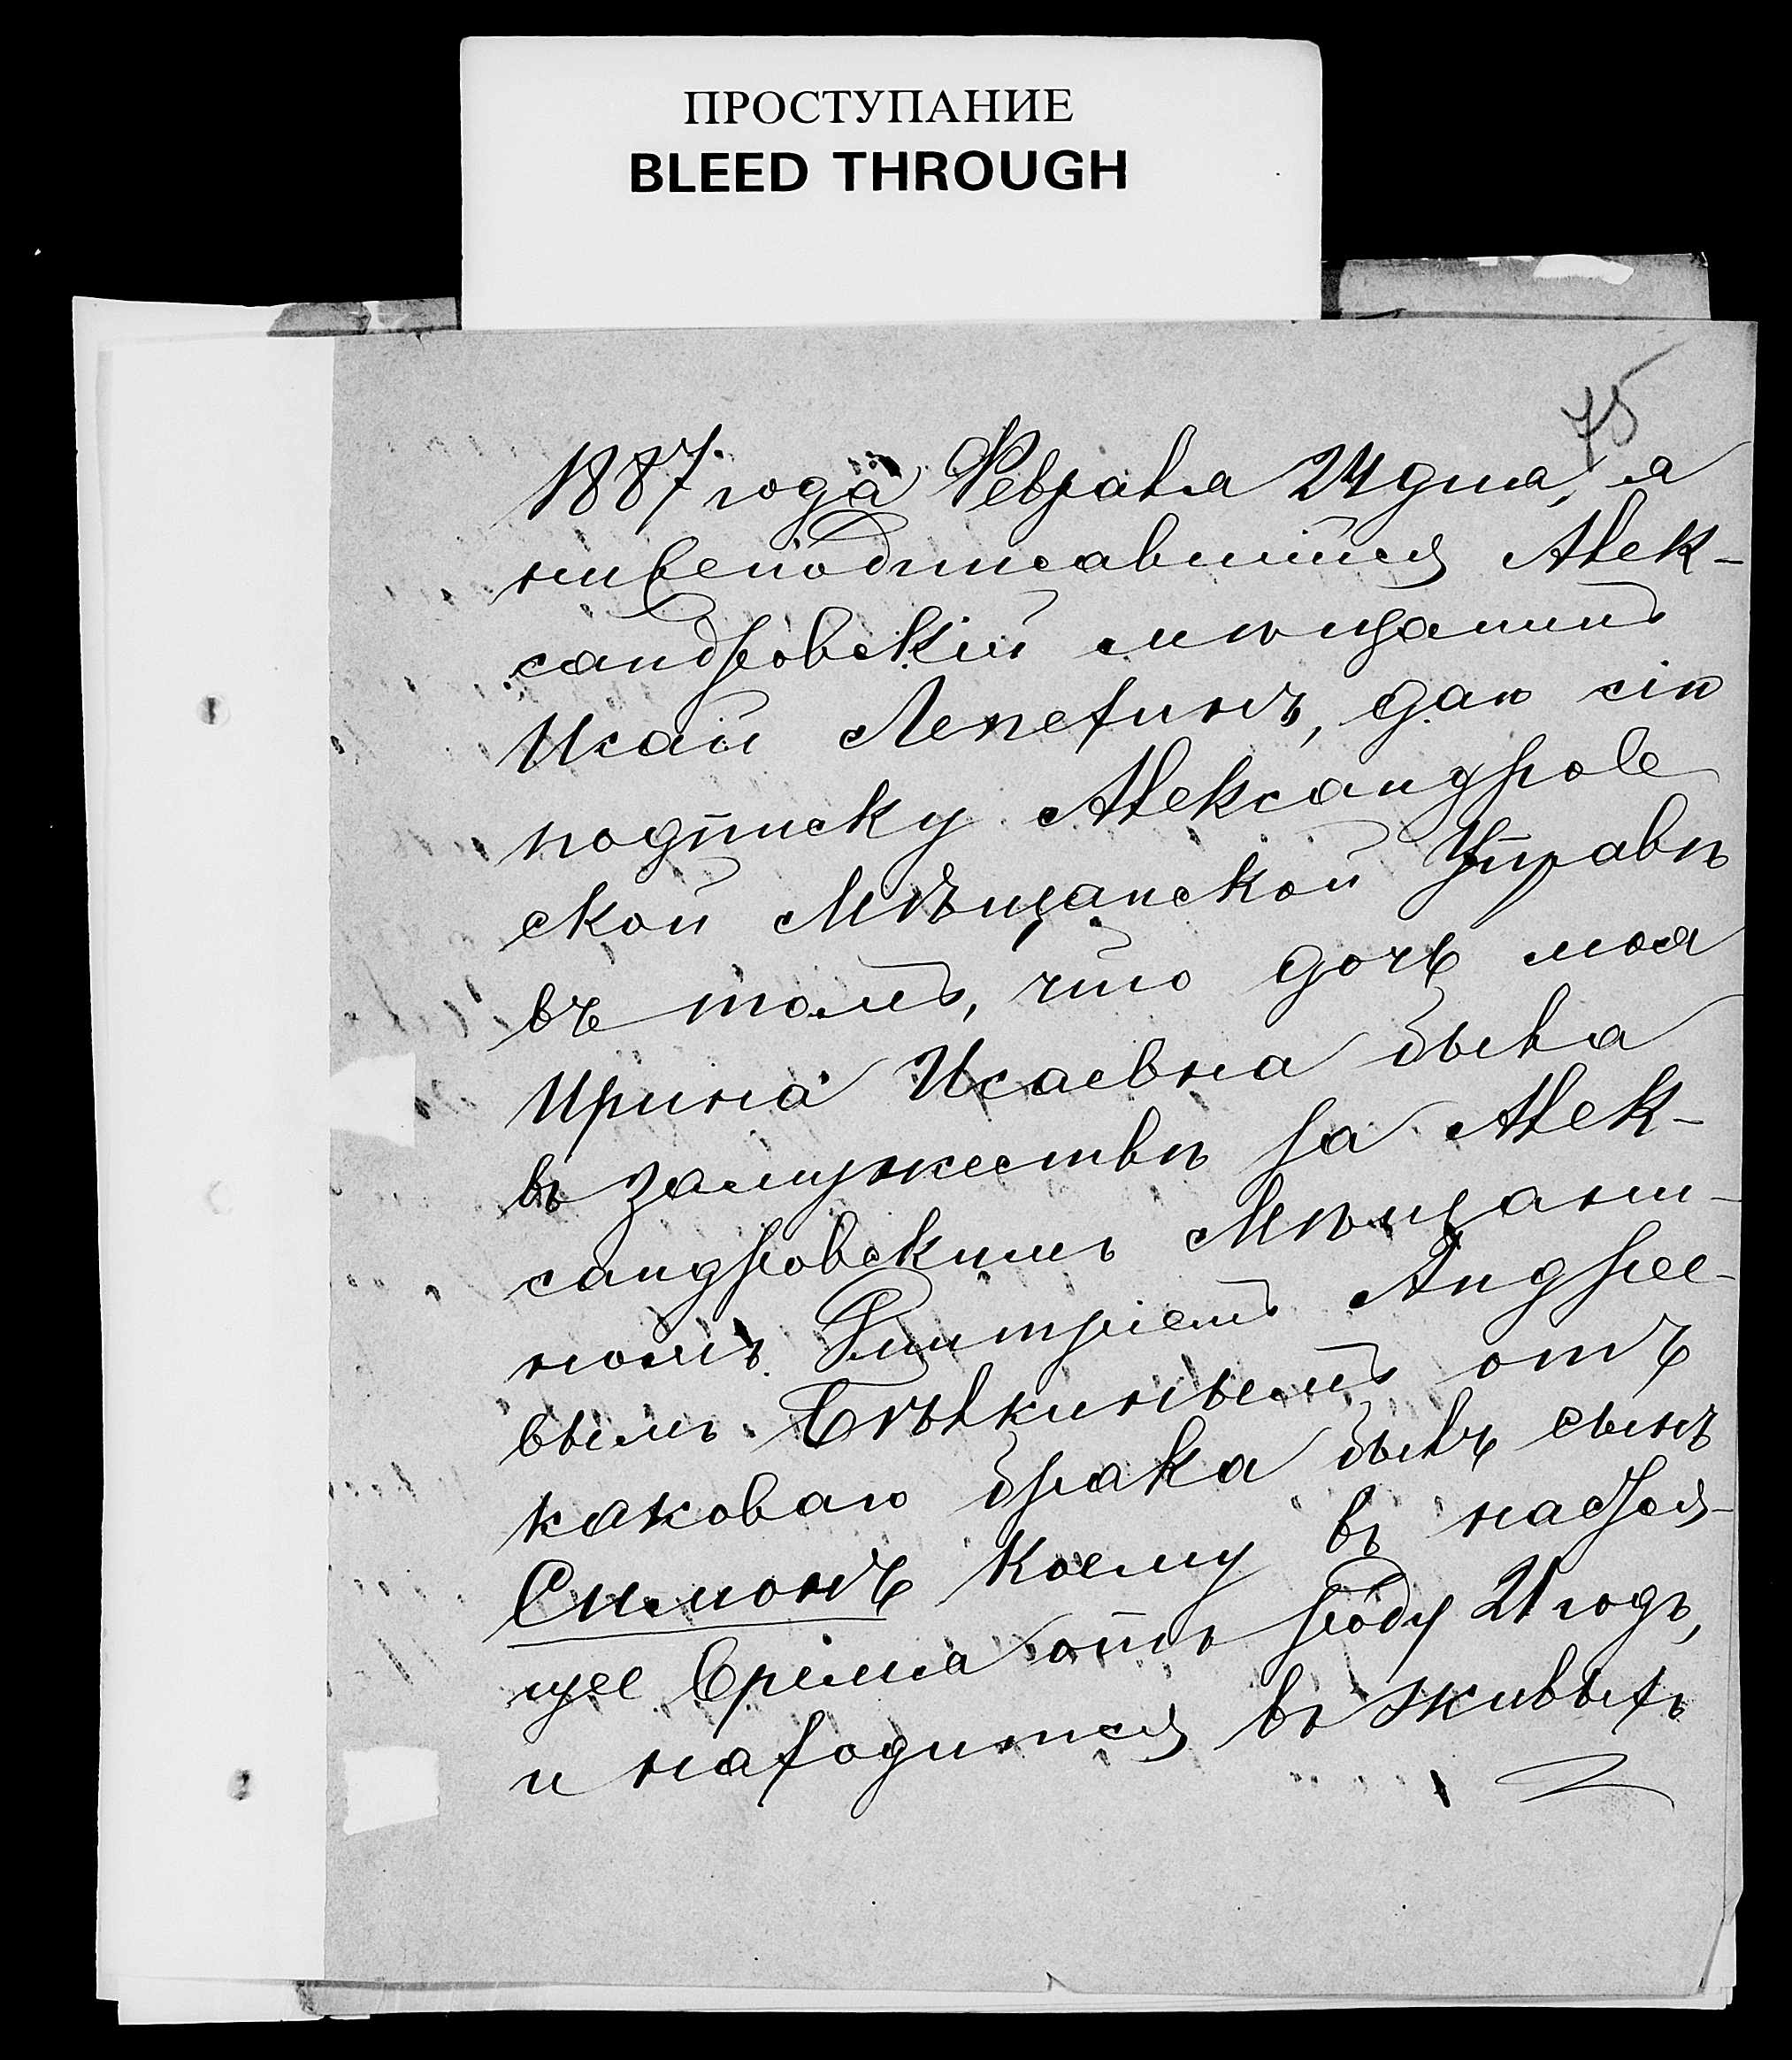 ПРОСТУПАНИЕ
BLEED THROUGH
75
1887 года Февраля 24 дня, я
нижеподписавшійся Алек-
сандровскій мѣщанинъ
Исай Лепетинъ, даю сію
подписку Александров
ской Мѣщанской Управѣ
въ томъ, что дочь моя
Ирина Исаевна была
въ замужествѣ за Алек-
сандровскимъ Мѣщани-
номъ Дмитріемъ Андрее-
вымъ Бѣлкинымъ отъ
каковаго брака былъ сынъ
Симонъ коему въ настоя-
щее время отъ роду 21 годъ,
и находится въ живыхъ